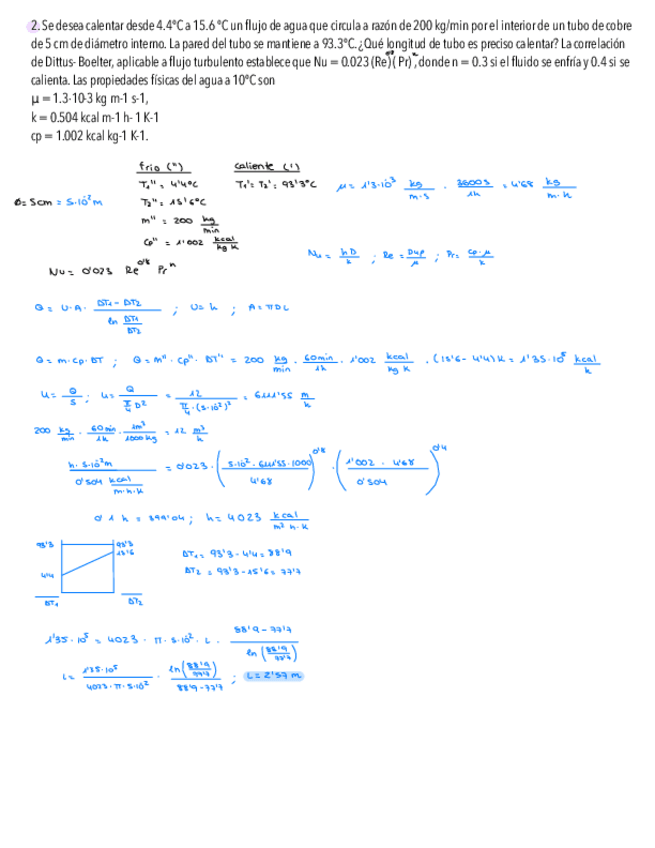 2. Se desea calentar desde 4.4ºC a 15.6 ºC un flujo de agua que circula a razón de 200 kg/min por el interior de un tubo de cobre
de 5 cm de diámetro interno. La pared del tubo se mantiene a 93.3ºC. ¿Qué longitud de tubo es preciso calentar? La correlación
de Dittus- Boelter, aplicable a flujo turbulento establece que Nu = 0.023 (Re)^0'8 (Pr)^n, donde n = 0.3 si el fluido se enfría y 0.4 si se
calienta. Las propiedades físicas del agua a 10ºC son
μ = 1.3·10-3 kg m-1 s-1,
k = 0.504 kcal m-1 h- 1 K-1
cp = 1.002 kcal kg-1 K-1.
frío (") caliente (')
T₁" = 4'4ºC T₁' = T₂' = 93'3ºC μ = 1'3·10⁻³ kg/m·s · 3600 s/1h = 4'68 kg/m·h
Ø = 5cm = 5·10⁻² m T₂" = 15'6ºC
m" = 200 kg/min
cp" = 1'002 kcal/kg K
Nu = hD/k ; Re = Duρ/μ ; Pr = cp·μ/k
Nu = 0'023 Re^0'8 Pr^n
Q = U·A· (ΔT₁ - ΔT₂)/(ln ΔT₁/ΔT₂) ; U = h ; A = πDL
Q = m·cp·ΔT ; Q = m"·cp"·ΔT" = 200 kg/min · 60min/1h · 1'002 kcal/kg K · (15'6 - 4'4) K = 1'35·10⁵ kcal/h
u = Q/S ; u = Q/(π/4 D²) = 12/(π/4·(5·10⁻²)²) = 6111'55 m/h
200 kg/min · 60 min/1h · 1m³/1000 kg = 12 m³/h
(h·5·10⁻² m)/(0'504 kcal/m·h·K) = 0'023 · (5·10⁻²·6111'55·1000/4'68)^0'8 · (1'002·4'68/0'504)^0'4
0'1 h = 399'04 ; h = 4023 kcal/m² h·K
93'3 93'3 ΔT₁ = 93'3 - 4'4 = 88'9
15'6
4'4 ΔT₂ = 93'3 - 15'6 = 77'7
ΔT₁ ΔT₂
1'35·10⁵ = 4023 · π · 5·10⁻² · L · (88'9 - 77'7)/(ln (88'9/77'7))
L = 1'35·10⁵/(4023·π·5·10⁻²) · ln(88'9/77'7)/(88'9-77'7) ; L = 2'57 m